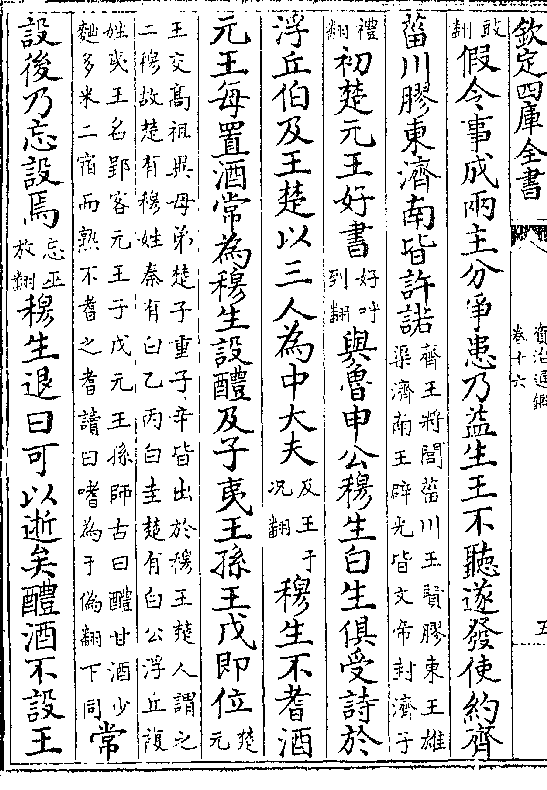 欽定四庫全書
資治通鑑
卷十六
五
敢翻假令事成兩主分爭患乃益生王不聽遂發使約齊
菑川膠東濟南皆許諾齊王將閭菑川王賢膠東王雄渠濟南王辟光皆文帝封濟子
禮翻初楚元王好書好呼到翻與魯申公穆生白生俱受詩於
浮丘伯及王楚以三人為中大夫及王于况翻穆生不耆酒
元王每置酒常為穆生設醴及子夷王孫王戊即位楚元
王交高祖異母弟楚子重子辛皆出於穆王楚人謂之
二穆故楚有穆姓秦有白乙丙白圭楚有白公浮丘複
姓夷王名郢客元王子戊元王孫師古曰醴甘酒少
麴多米二宿而熟不耆之耆讀曰嗜為于偽翻下同常
設後乃忘設焉忘巫放翻穆生退曰可以逝矣醴酒不設王